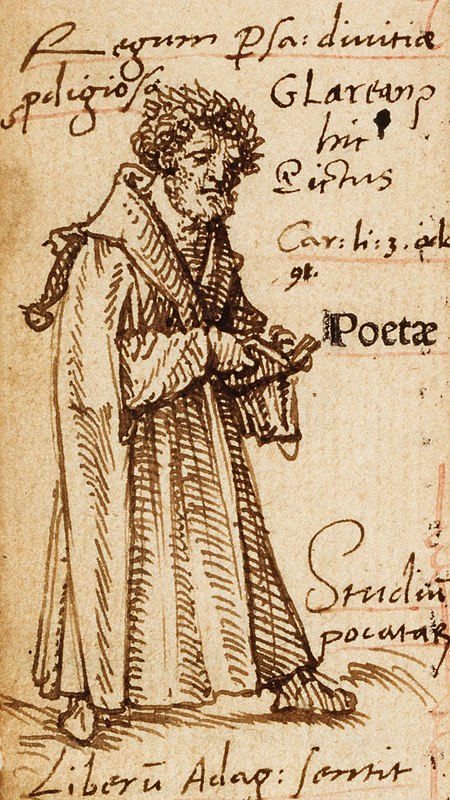 Regum Psa: divitiæ
pdigiosæ
GLareanꝰ
hic
Pictus
Car: li: 3. od:
91.
Poetæ
Studiū
poetaꝝ
Liberū Adag: sentit